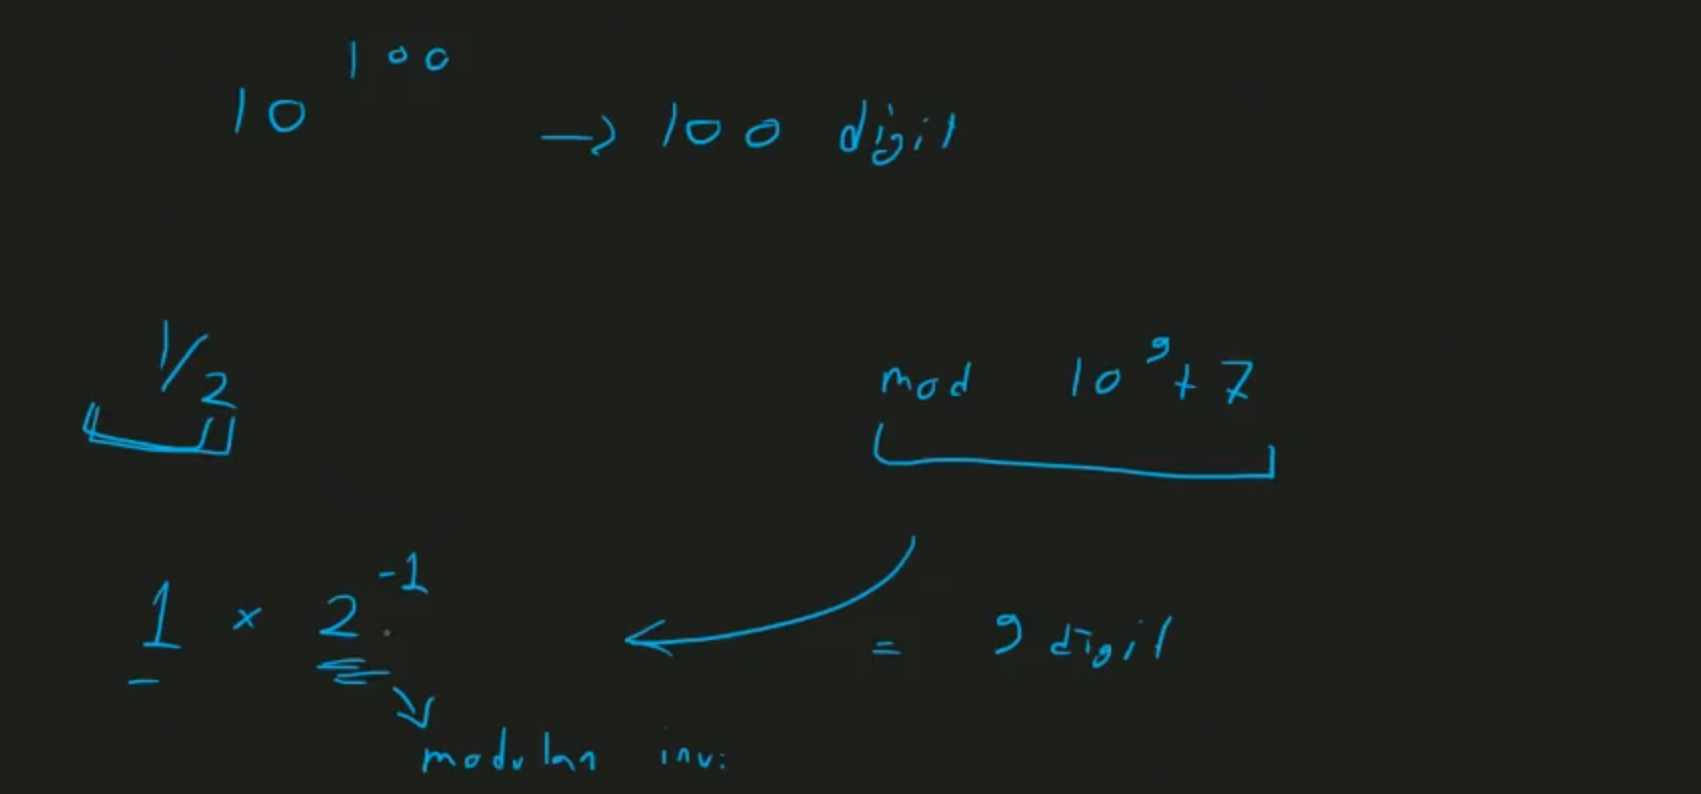 10^100 → 100 digit
1/2
mod 10^9 + 7
1 × 2^-1
= 9 digit
modular inv: